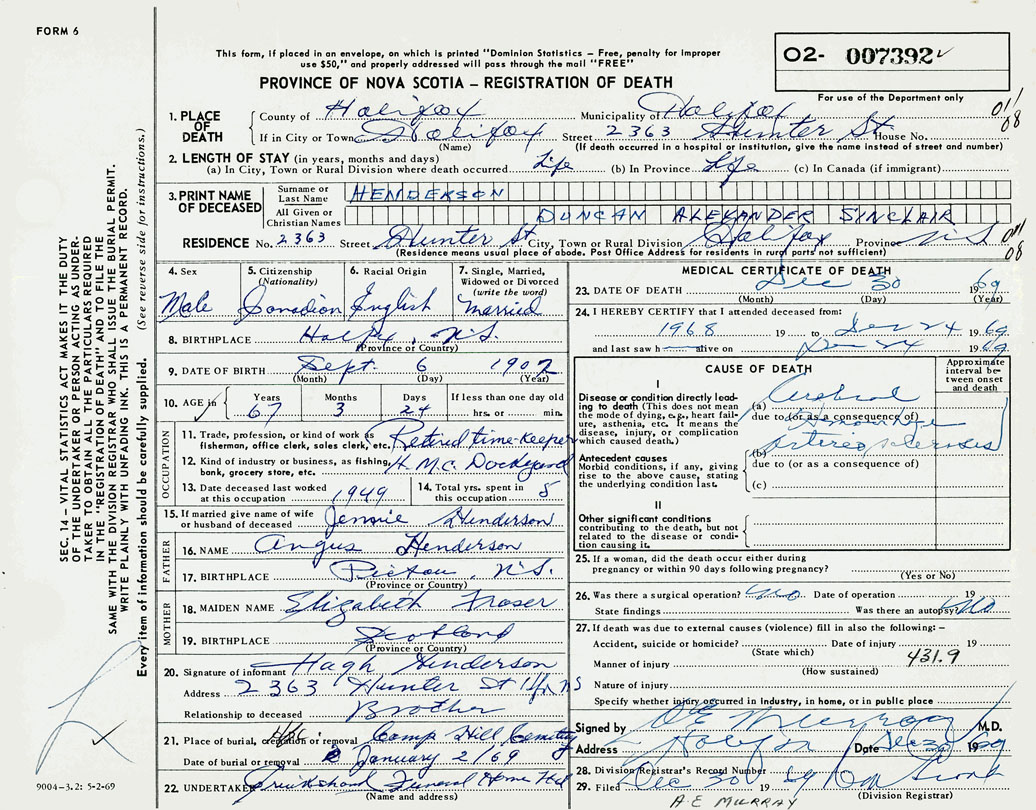 FORM 6
This form, if placed in an envelope, on which is printed "Dominion Statistics – Free, penalty for improper
use $50," and properly addressed will pass through the mail "FREE"
PROVINCE OF NOVA SCOTIA – REGISTRATION OF DEATH
02- 007392
For use of the Department only
011
08
1. PLACE OF DEATH
County of Halifax Municipality of Halifax
If in City or Town Halifax Street 2363 Hunter St House No.
(Name) (If death occurred in a hospital or institution, give the name instead of street and number)
2. LENGTH OF STAY (in years, months and days)
(a) In City, Town or Rural Division where death occurred Life (b) In Province Life (c) In Canada (if immigrant)
3. PRINT NAME OF DECEASED
Surname or Last Name HENDERSON
All Given or Christian Names DUNCAN ALEXANDER SINCLAIR
RESIDENCE No. 2363 Street Hunter St City, Town or Rural Division Halifax Province N S
(Residence means usual place of abode. Post Office Address for residents in rural parts not sufficient)
011
08
4. Sex
Male
5. Citizenship
(Nationality)
Canadian
6. Racial Origin
English
7. Single, Married,
Widowed or Divorced
(write the word)
Married
8. BIRTHPLACE Halfx, N.S.
(Province or Country)
9. DATE OF BIRTH Sept. 6 1902
(Month) (Day) (Year)
10. AGE in Years Months Days If less than one day old
67 3 24 hrs. or min.
OCCUPATION
11. Trade, profession, or kind of work as Retired time-keeper
fisherman, office clerk, sales clerk, etc.
12. Kind of industry or business, as fishing, H.M.C. Dockyard
bank, grocery store, etc.
13. Date deceased last worked
at this occupation 1949
14. Total yrs. spent in
this occupation 5
15. If married give name of wife
or husband of deceased Jennie Henderson
FATHER
16. NAME Angus Henderson
17. BIRTHPLACE Pictou, N.S.
(Province or Country)
MOTHER
18. MAIDEN NAME Elizabeth Fraser
19. BIRTHPLACE Scotland
(Province or Country)
20. Signature of informant Hugh Henderson
Address 2363 Hunter St Hfx NS
Relationship to deceased Brother
21. Place of burial, cremation or removal Camp Hill Cemetery
Date of burial or removal January 2/69
22. UNDERTAKER Cruikshank Funeral Home
(Name and address)
MEDICAL CERTIFICATE OF DEATH
23. DATE OF DEATH Dec 30 1969
(Month) (Day) (Year)
24. I HEREBY CERTIFY that I attended deceased from:
1968 19 to Dec 24 1969
and last saw h alive on Dec 24 1969
CAUSE OF DEATH
Approximate
interval be-
tween onset
and death
I
Disease or condition directly lead-
ing to death (This does not mean
the mode of dying, e.g., heart fail-
ure, asthenia, etc. It means the
disease, injury, or complication
which caused death.)
(a) Cerebral
due to (or as a consequence of)
Hemorrhage
Arteriosclerosis
Antecedent causes
Morbid conditions, if any, giving
rise to the above cause, stating
the underlying condition last.
(b)
due to (or as a consequence of)
(c)
II
Other significant conditions
contributing to the death, but not
related to the disease or condi-
tion causing it.
25. If a woman, did the death occur either during
pregnancy or within 90 days following pregnancy?
(Yes or No)
26. Was there a surgical operation? No Date of operation 19
State findings Was there an autopsy? No
27. If death was due to external causes (violence) fill in also the following: –
Accident, suicide or homicide? Date of injury 19
(State which) 431.9
Manner of injury
(How sustained)
Nature of injury
Specify whether injury occurred in Industry, in home, or in public place
Signed by A E Murray M.D.
Address Halifax Date Dec 30 1969
28. Division Registrar's Record Number
29. Filed Dec 30 1969
(Division Registrar)
A.E MURRAY
SEC. 14 – VITAL STATISTICS ACT MAKES IT THE DUTY
OF THE UNDERTAKER OR PERSON ACTING AS UNDER-
TAKER TO OBTAIN ALL THE PARTICULARS REQUIRED
IN THE "REGISTRATION OF DEATH" AND TO FILE THE
SAME WITH THE DIVISION REGISTRAR WHO SHALL ISSUE THE BURIAL PERMIT.
WRITE PLAINLY WITH UNFADING INK. THIS IS A PERMANENT RECORD.
Every item of information should be carefully supplied. (See reverse side for instructions.)
9004–3.2: 5-2-69